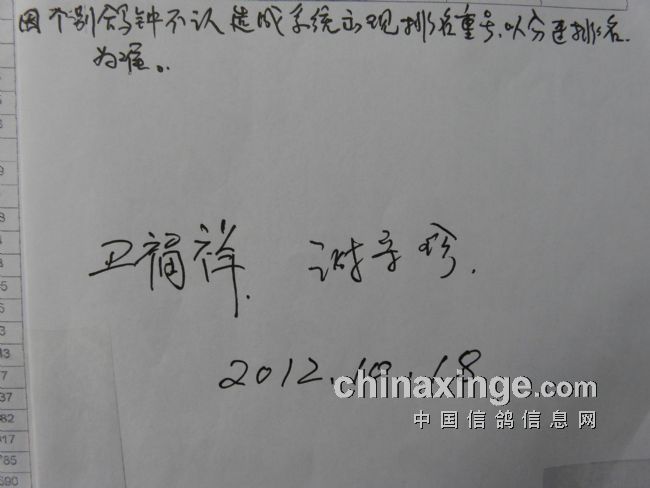 因个别鸽钟不认造成系统出现排名重号，以分速排名
为准。
卫福祥
2012.10.18
chinaxinge.com
中国信鸽信息网
13
37
82
017
785
590